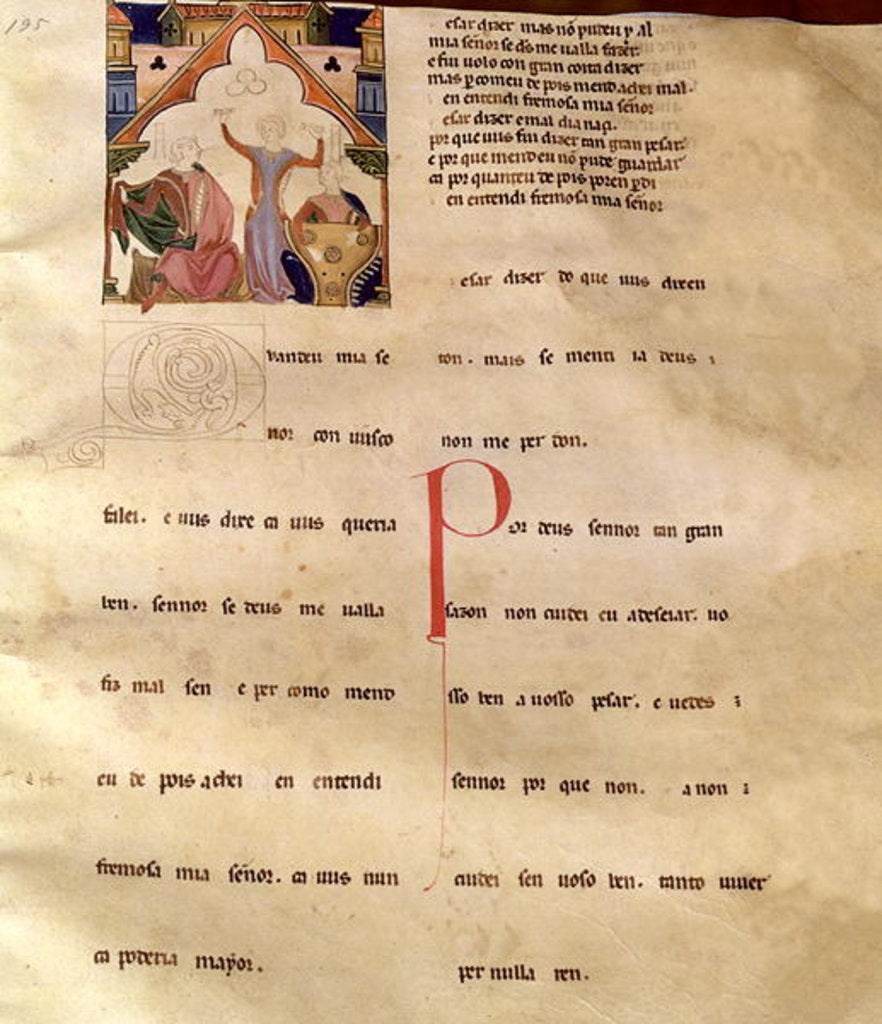 195
Q vanteu mia se
nor con uusco
falei. e uus dixe ca uus queria
ben. sennor se deus me ualla
fiz mal sen e per como mend
eu de pois achei en entendi
fremosa mia señor. ca uus nun
ca poderia mayor.
esar dizer mas nõ pudeu y al
mia señor se dꝰ me ualla fazer
e fui uolo con gran coita dizer
mas ꝑ comeu de pois mend achei mal.
en entendi fremosa mia señor
esar dizer e mal dia naçi.
por que uus fui dizer tan gran pesar
e por que mend eu nõ pude guardar
ca por quanteu de pois poren ꝑdi
en entendi fremosa mia señor
esar dizer do que uus direu
ton. mais se menti ia deus :
non me per don.
Por deus sennor tan gran
sazon non cuidei eu a deseiar. uo
sso ben a uosso pesar. e uedes :
sennor por que non. a non :
cuidei sen uoso ben. tanto uiuer
per nulla ren.